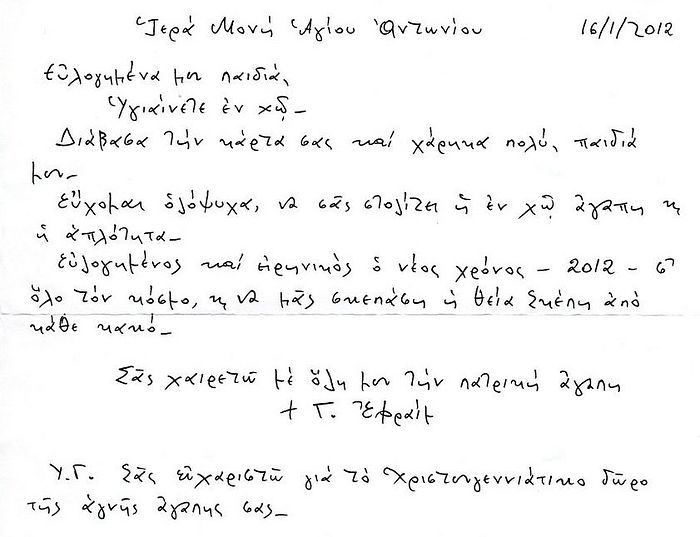 Ἱερά Μονή Ἁγίου Ἀντωνίου 16/1/2012
Εὐλογημένα μου παιδιά,
Ὑγιαίνετε ἐν χῷ–
Διάβασα τήν κάρτα σας καί χάρηκα πολύ, παιδιά
μου–
Εὔχομαι ὁλόψυχα, να σᾶς στολίζει ἡ ἐν χῷ ἀγαπη κ
ἡ ἁπλότητα–
Εὐλογημένος καί εἰρηνικὸς ὁ νέος χρόνος – 2012 – σ'
ὅλο τόν κόσμο, κ να μᾶς σκεπάση ἡ θεία Σκέπη ἀπό
κάθε κακό–
Σᾶς χαιρετῶ μέ ὅλη μου τήν πατρική ἀγαπη
+ Γ. Ἐφραίμ
Υ.Γ. Σᾶς εὐχαριστῶ γιά τό Χριστουγεννιάτικο δῶρο
τῆς ἁγνῆς ἀγαπης σας–